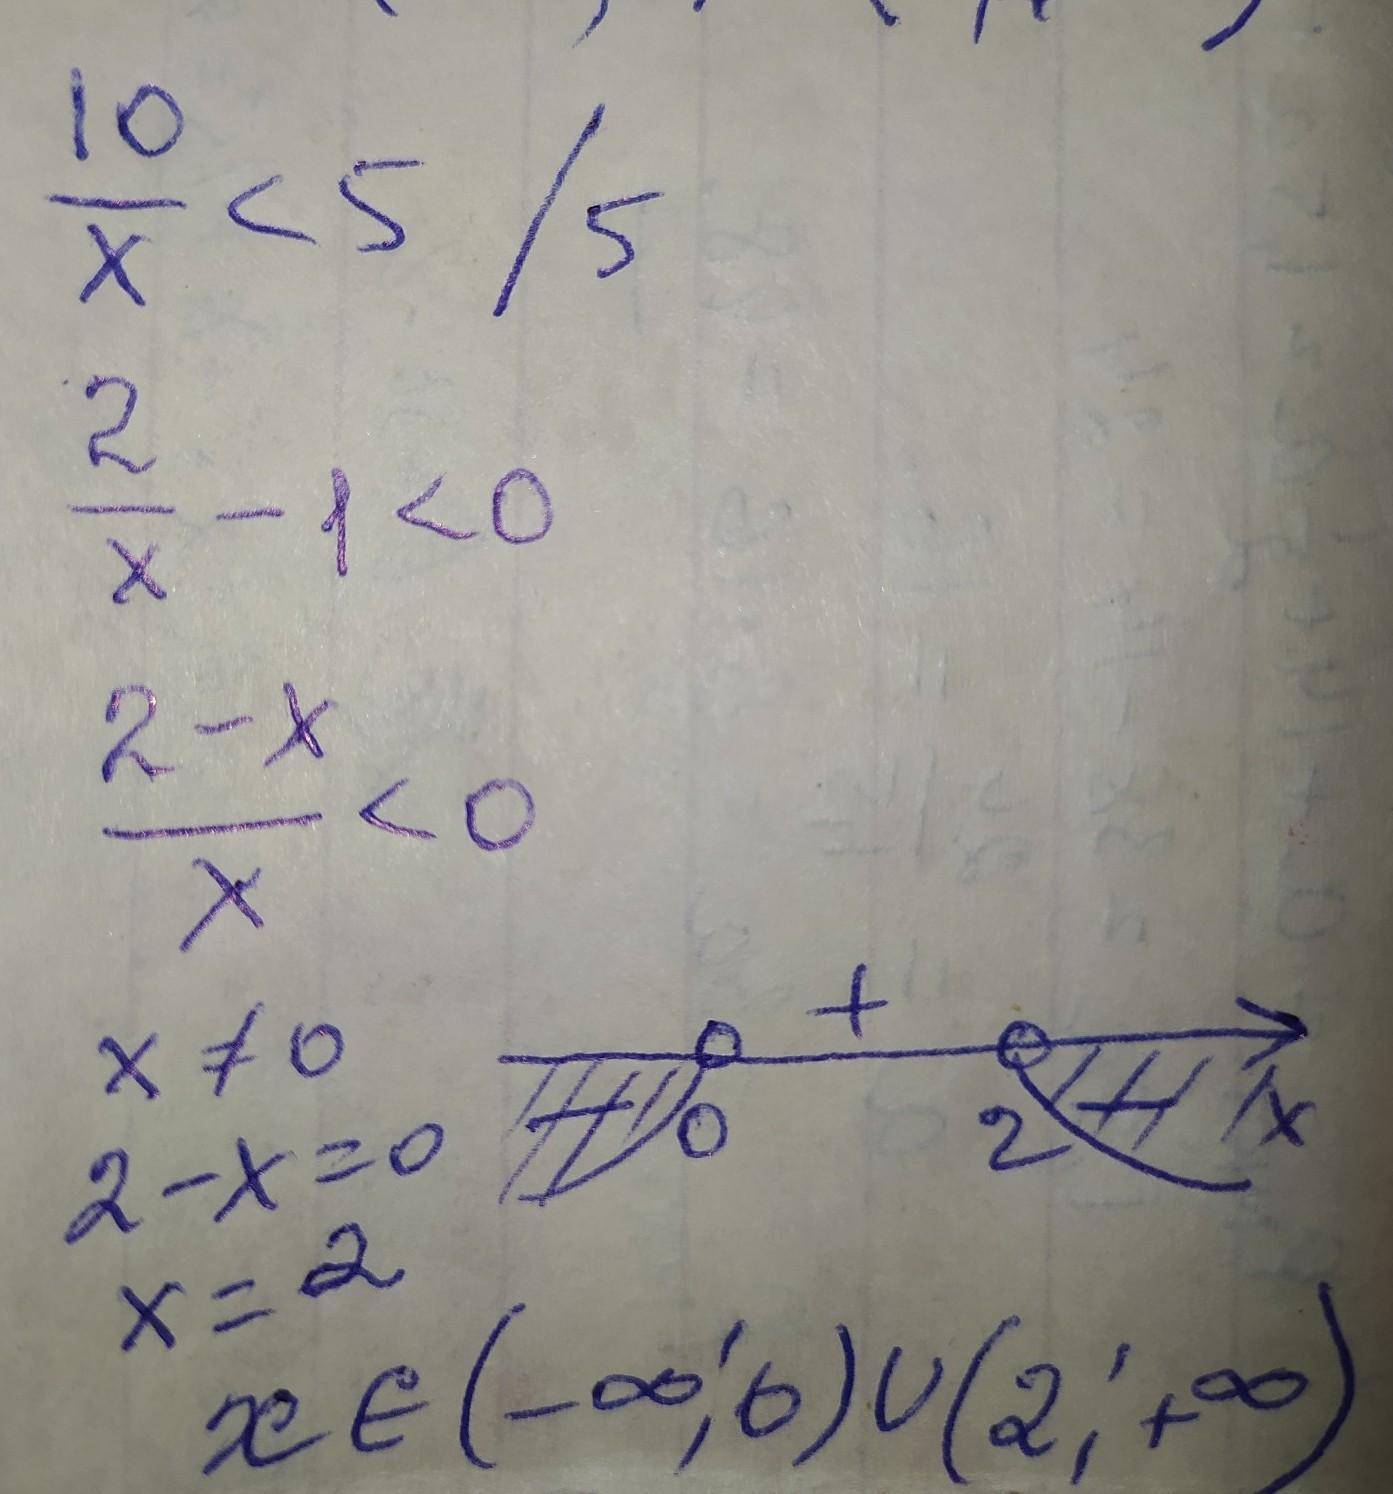 10/x < 5 / 5
2/x - 1 < 0
2-x/x < 0
x ≠ 0
+
0 2 x
2-x=0
x=2
x ∈ (-∞; 0) ∪ (2; +∞)